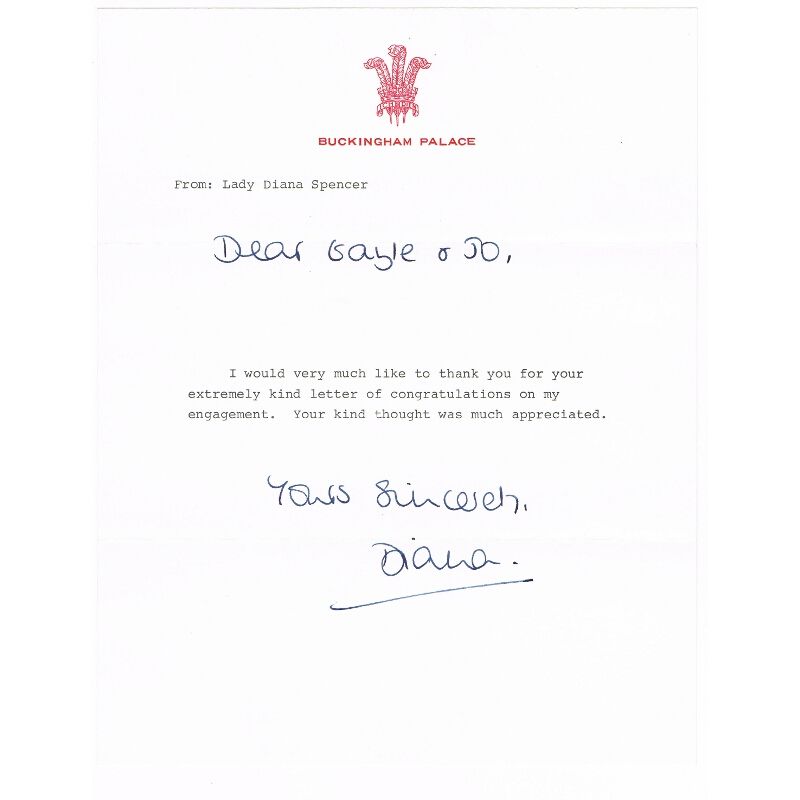 BUCKINGHAM PALACE
From: Lady Diana Spencer
Dear Gayle & Jo,
I would very much like to thank you for your
extremely kind letter of congratulations on my
engagement. Your kind thought was much appreciated.
Yours Sincerely,
Diana.